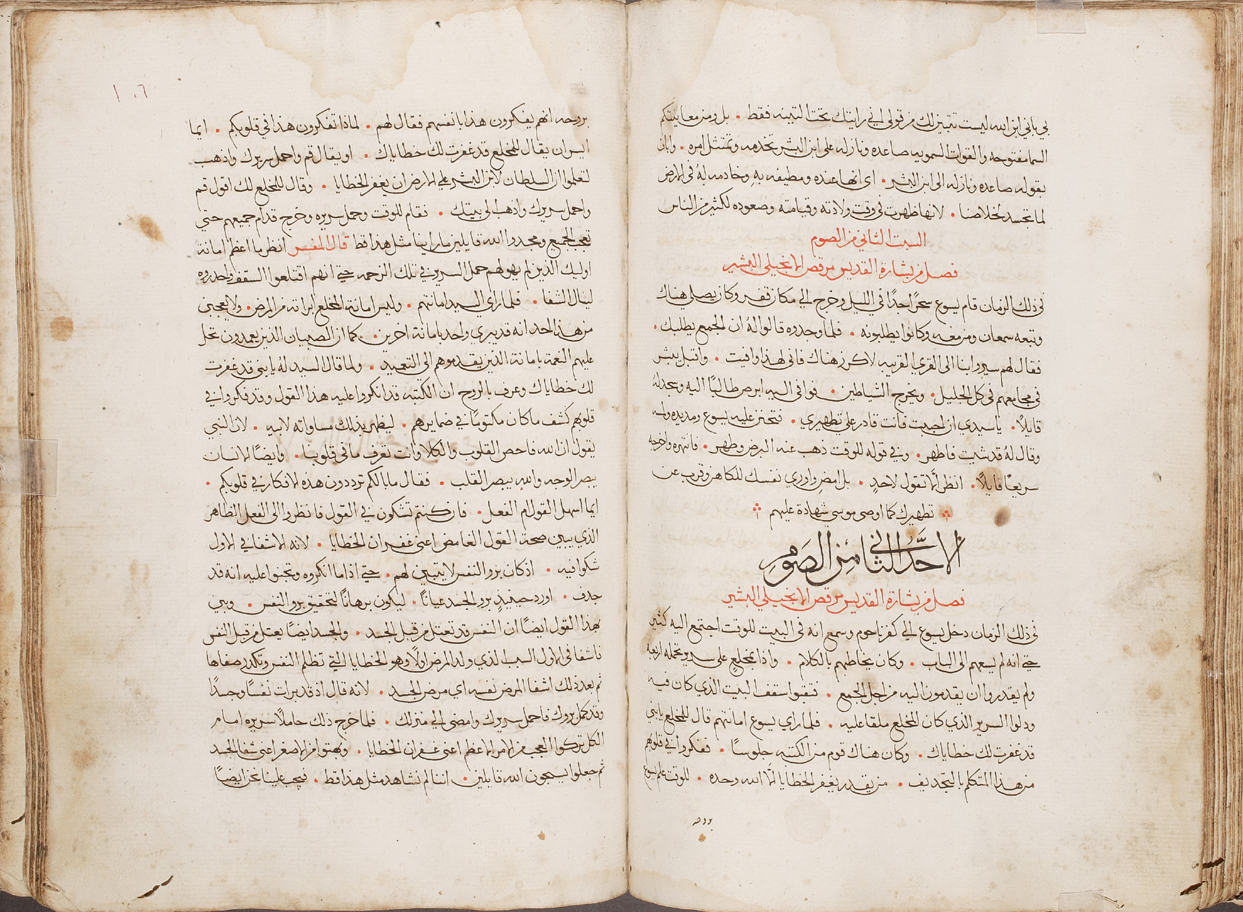 بي باني ابن الله ليست تتبين لك من قولي اني رايتك تحت التينه فقط • بل ومن معاينتكم
السما مفتوحه والقوات السمويه صاعده ونازله على ابن البشر تخدمه وتمتثل امره • وبان
بقوله صاعده ونازله الى ابن البشر • اي انها عنده ومطيفه به وخادمه له في الارض
لما تجسد لخلاصنا • لانها ظهرت في وقت ولادته وقيامته وصعوده لكثير من الناس
السبت الثاني من الصوم
فصل من بشارة القديس مرقص الانجيلي البشير
في ذلك الزمان قام يسوع سحرًا جدًا في الليل وخرج الى مكان قفر وكان يصلي هناك
وتبعه سمعان ومن معه وكانوا يطلبونه • فلما وجدوه قالوا له ان الجميع يطلبك •
فقال لهم سيروا بنا الى القرى القريبه لاكرز هناك فاني لهذا وافيت • واقبل يبشر
في مجامعهم في كل الجليل • ويخرج الشياطين • فوافى اليه ابرص طالبًا اليه ويجدله
قايلًا • يا سيدي ان احببت فانت قادر على تطهيري • فتحنن عليه يسوع ومد يده ولمسه
وقال له قد شيت فاطهر • وفي قوله للوقت ذهب عنه البرص وطهر • فانتهره واخرجه
سريعًا قايلًا • انظر الا تقول لاحدٍ • بل امض واوري نفسك للكاهن وقرب عن
تطهيرك كما اوصى موسى شهادة عليهم
الاحد الثاني من الصوم
فصل من بشارة القديس مرقص الانجيلي البشير
في ذلك الزمان دخل يسوع الى كفرناحوم وسمع انه في البيت للوقت اجتمع اليه كثير
حتى انه لم يسعهم الى الباب • وكان يخاطبهم بالكلام • واذا بمخلع على سرير يحمله اربعه
ولم يقدروا ان يقدموا اليه من اجل الجمع • فنقبوا سقف البيت الذي كان فيه
ودلوا السرير الذي كان المخلع ملقا عليه • فلما راي يسوع امانتهم قال للمخلع يابني
قد غفرت لك خطاياك • وكان هناك قوم من الكتبه جلوسًا • ففكروا في قلوبهم
من هذا المتكلم بالتجديف • من يقدر يغفر الخطايا الا الله وحده • للوقت علم يسوع
بروحه
١٠٦
بروحه انهم يفكرون هذا بانفسهم فقال لهم • لماذا تفكرون هذا في قلوبكم • ايما
ايسر ان يقال للمخلع قد غفرت لك خطاياك • او يقال قم واحمل سريرك واذهب
لتعلموا ان السلطان لابن البشر على الارض ان يغفر الخطايا • وقال للمخلع لك اقول قم
واحمل سريرك واذهب الى بيتك • فقام للوقت وحمل سريره وخرج قدام جميعهم حتى
تعجب الجميع ومجدوا الله قايلين ما راينا مثل هذا قط قال المفسر انظر ما اعظم امانة
اوليك الذين لم يهولهم حمل السرير في تلك الزحمه حتى انهم اقتلعوا السقف واحدروه
لينال الشفا • فلما راي السيد امانتهم • وليس امانة المخلع ابرأته من المرض • ولا يعجبن
من هذا احد انه قد يبرى واحد بامانة اخرين • كما ان الصبيان الذين يعمدون تحل
عليهم النعمة بامانة الذين يقدموهم الى التعميد • ولما قال السيد له يابني قد غفرت
لك خطاياك وعرف بالروح ان الكتبه قد انكروا عليه هذا القول وقد فكروا في
قلوبهم كشف ما كان مكتومًا في ضمايرهم • ليظهر بذلك مساواته لابيه • لان النبي
يقول ان الله فاحص القلوب والكلا وانت تعرف ما في قلوبنا • وايضًا الانسان
يبصر الوجه والله يبصر القلب • فقال ما بالكم ترددون هذه الافكار في قلوبكم •
ايما اسهل القول ام الفعل • فان كنتم تشكون في القول فانظروا الى الفعل الظاهر
الذي يبين صحة القول الغامض اعني غفران الخطايا • لانه الاشفا في الاول
شكوا فيه • اذ كان برو النفس لا يتبين لهم • حتى اذا ما انكروه وتجنوا عليه انه قد
جدف • اورد حينيذٍ برو الجسد عيانًا • ليكون برهانًا لتحقيق برو النفس • وبين
بهذا القول ايضًا ان النفس قد تعتل من قبل الجسد • والجسد ايضًا يعتل من قبل النفس
فاشفا في الاول السبب الذي ولد المرض اولًا وهو الخطايا التي تظلم النفس وتكدر صفاها
ثم بعد ذلك اشفا المرض نفسه اي مرض الجسد • لانه قال اذ قد برات نفسًا وجسدًا
وقد كمل بروك فاحمل سريرك وامضى الى منزلك • فلما خرج ذلك حاملًا سريره امام
الكل تركوا العجب من الامر الاعظم اعني غفران الخطايا • وبهتوا من الاصغر اعني شفا الجسد
ثم جعلوا يسبحون الله قايلين • اننا لم نشاهد مثل هذا قط • فيجب علينا نحن ايضًا